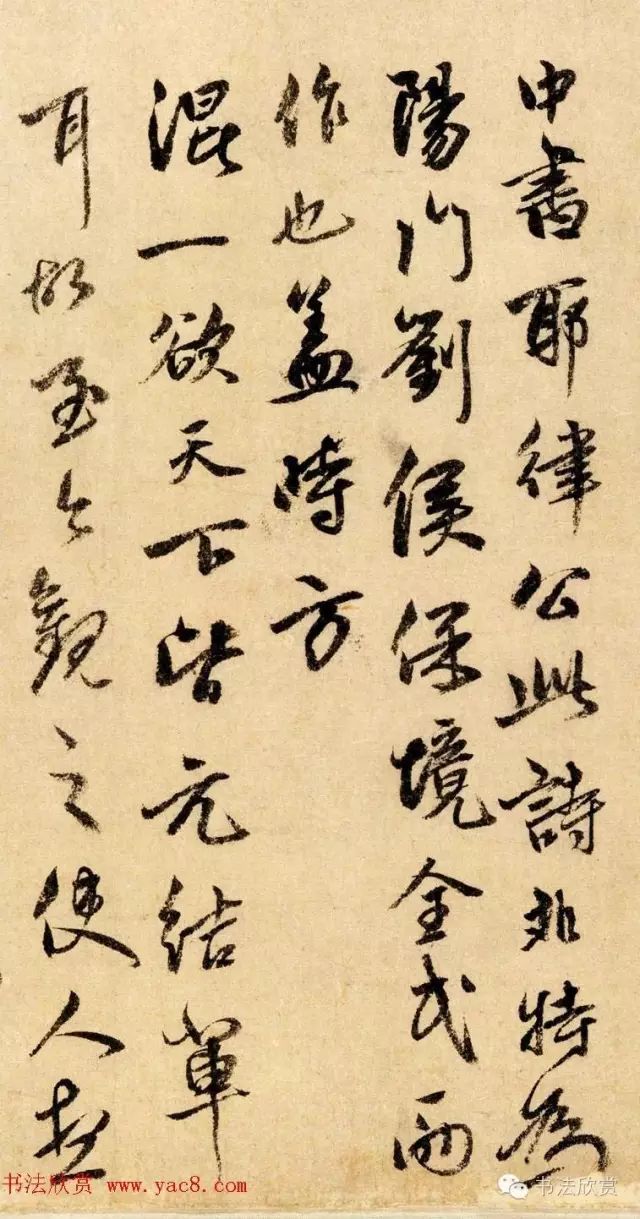 中書耶律公此詩非特為
陽門劉侯保境全民而
作也盖時方
混一欲天下皆元結輩
耳故至今觀之使人
书法欣赏 www.yac8.com
书法欣赏